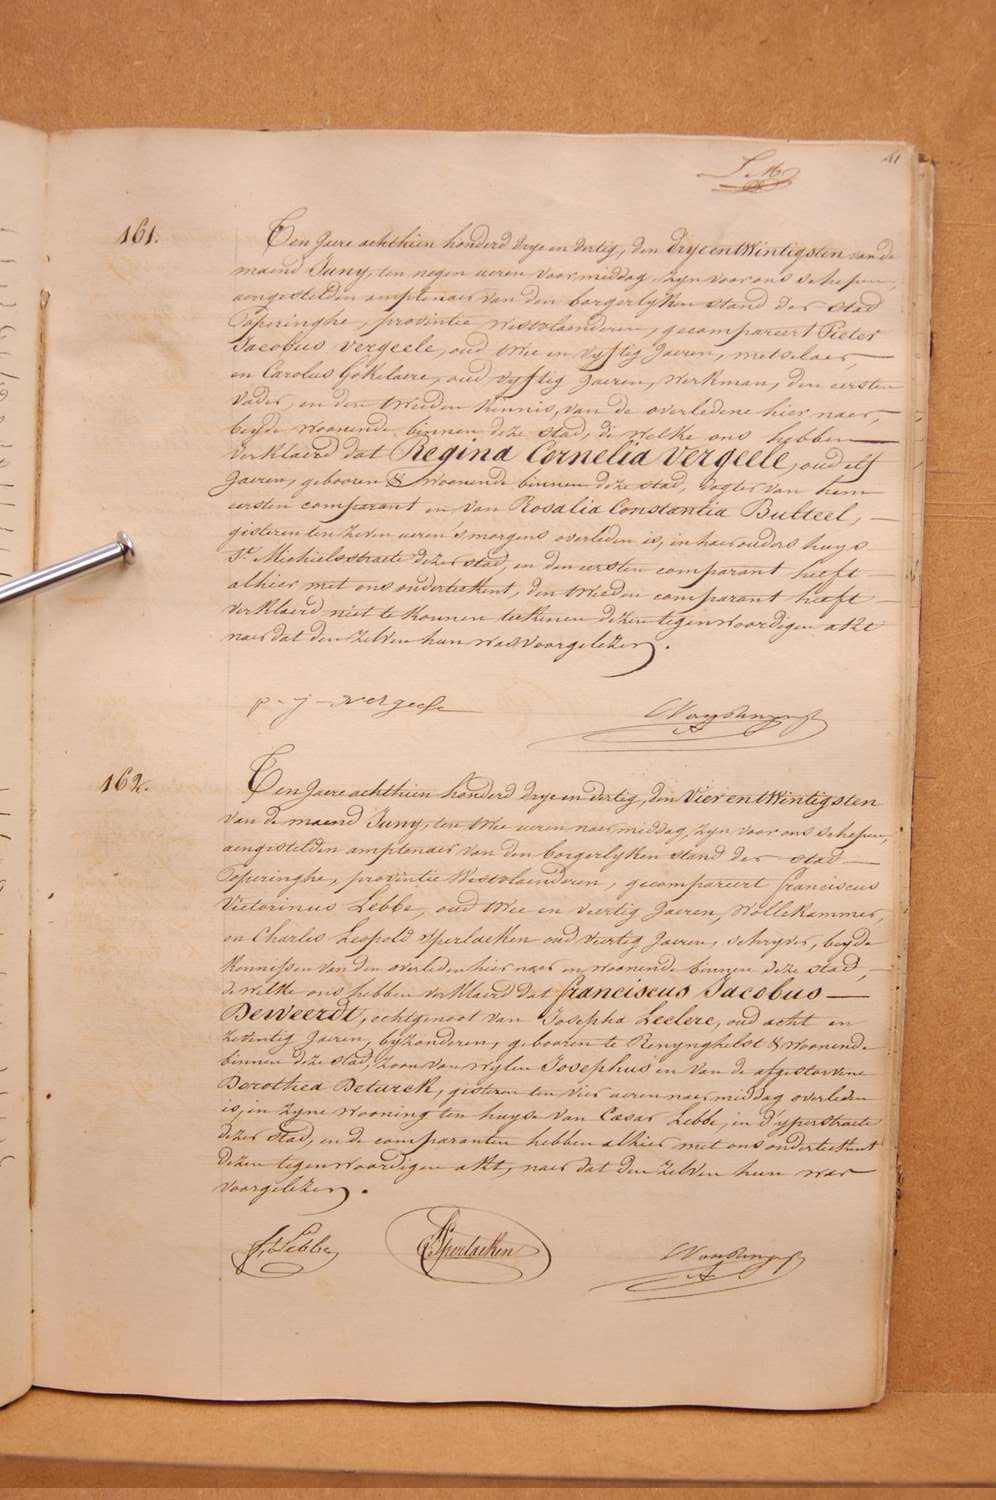 41
161.
Ten Jaere achthien honderd drye en dertig, den drye en twintigsten van de
maend Juny, ten negen ueren voormiddag zyn voor ons schepen,
aengestelden amptenaer van den borgerlyken stand der stad
Poperinghe, provintie Westvlaenderen, gecompareert Pieter
Jacobus Vergeele, oud twee en vyftig Jaeren, metselaer,
en Carolus Gokelaere, oud vyftig Jaeren, werkman, den eersten
vader, en den tweeden kennis, van de overledene hier naer,
beyde woonende binnen deze stad, de welke ons hebben
verklaerd dat Regina Cornelia Vergeele, oud elf
Jaeren, gebooren & woonende binnen deze stad, dogter van hem
eersten comparant en van Rosalia Constantia Butteel,
gisteren ten zeven ueren 's morgens overleden is, in haer ouders huys
St Michielsstraete dezer stad, en den eersten comparant heeft
alhier met ons onderteekent, den tweeden comparant heeft
verklaerd niet te konnen teekenen dezen tegenwoordigen akt
naer dat den zelven hun was voorgelezen.
p - j - vergeele
162.
Ten Jaere achthien honderd drye en dertig, den Vier en twintigsten
van de maend Juny, ten twee ueren naermiddag, zyn voor ons schepen,
aengestelden amptenaer van den borgerlyken stand der stad
Poperinghe, provintie Westvlaenderen, gecompareert franciscus
Victorinus Lebbe, oud twee en veertig Jaeren, Wollekammer,
en Charles Leopold Sperlaeken oud veertig Jaeren, schryver, beyde
kennissen van den overleden hier naer en woonende binnen deze stad,
de welke ons hebben verklaerd dat franciscus Jacobus
Deweerdt, echtgenoot van Josepha Leclere, oud acht en
zeventig Jaeren, byzonderen, gebooren te Renynghelst & woonende
binnen deze stad, zoon van wylen Josephus en van de afgestorvene
Dorothea Deturck, gisteren ten vier ueren naermiddag overleden
is, in zyne wooning ten huyse van Cæsar Lebbe, in d'yperstraete
dezer stad, en de comparanten hebben alhier met ons onderteekent
dezen tegenwoordigen akt, naer dat den zelven hun was
voorgelezen.
Lebbe
Sperlaeken